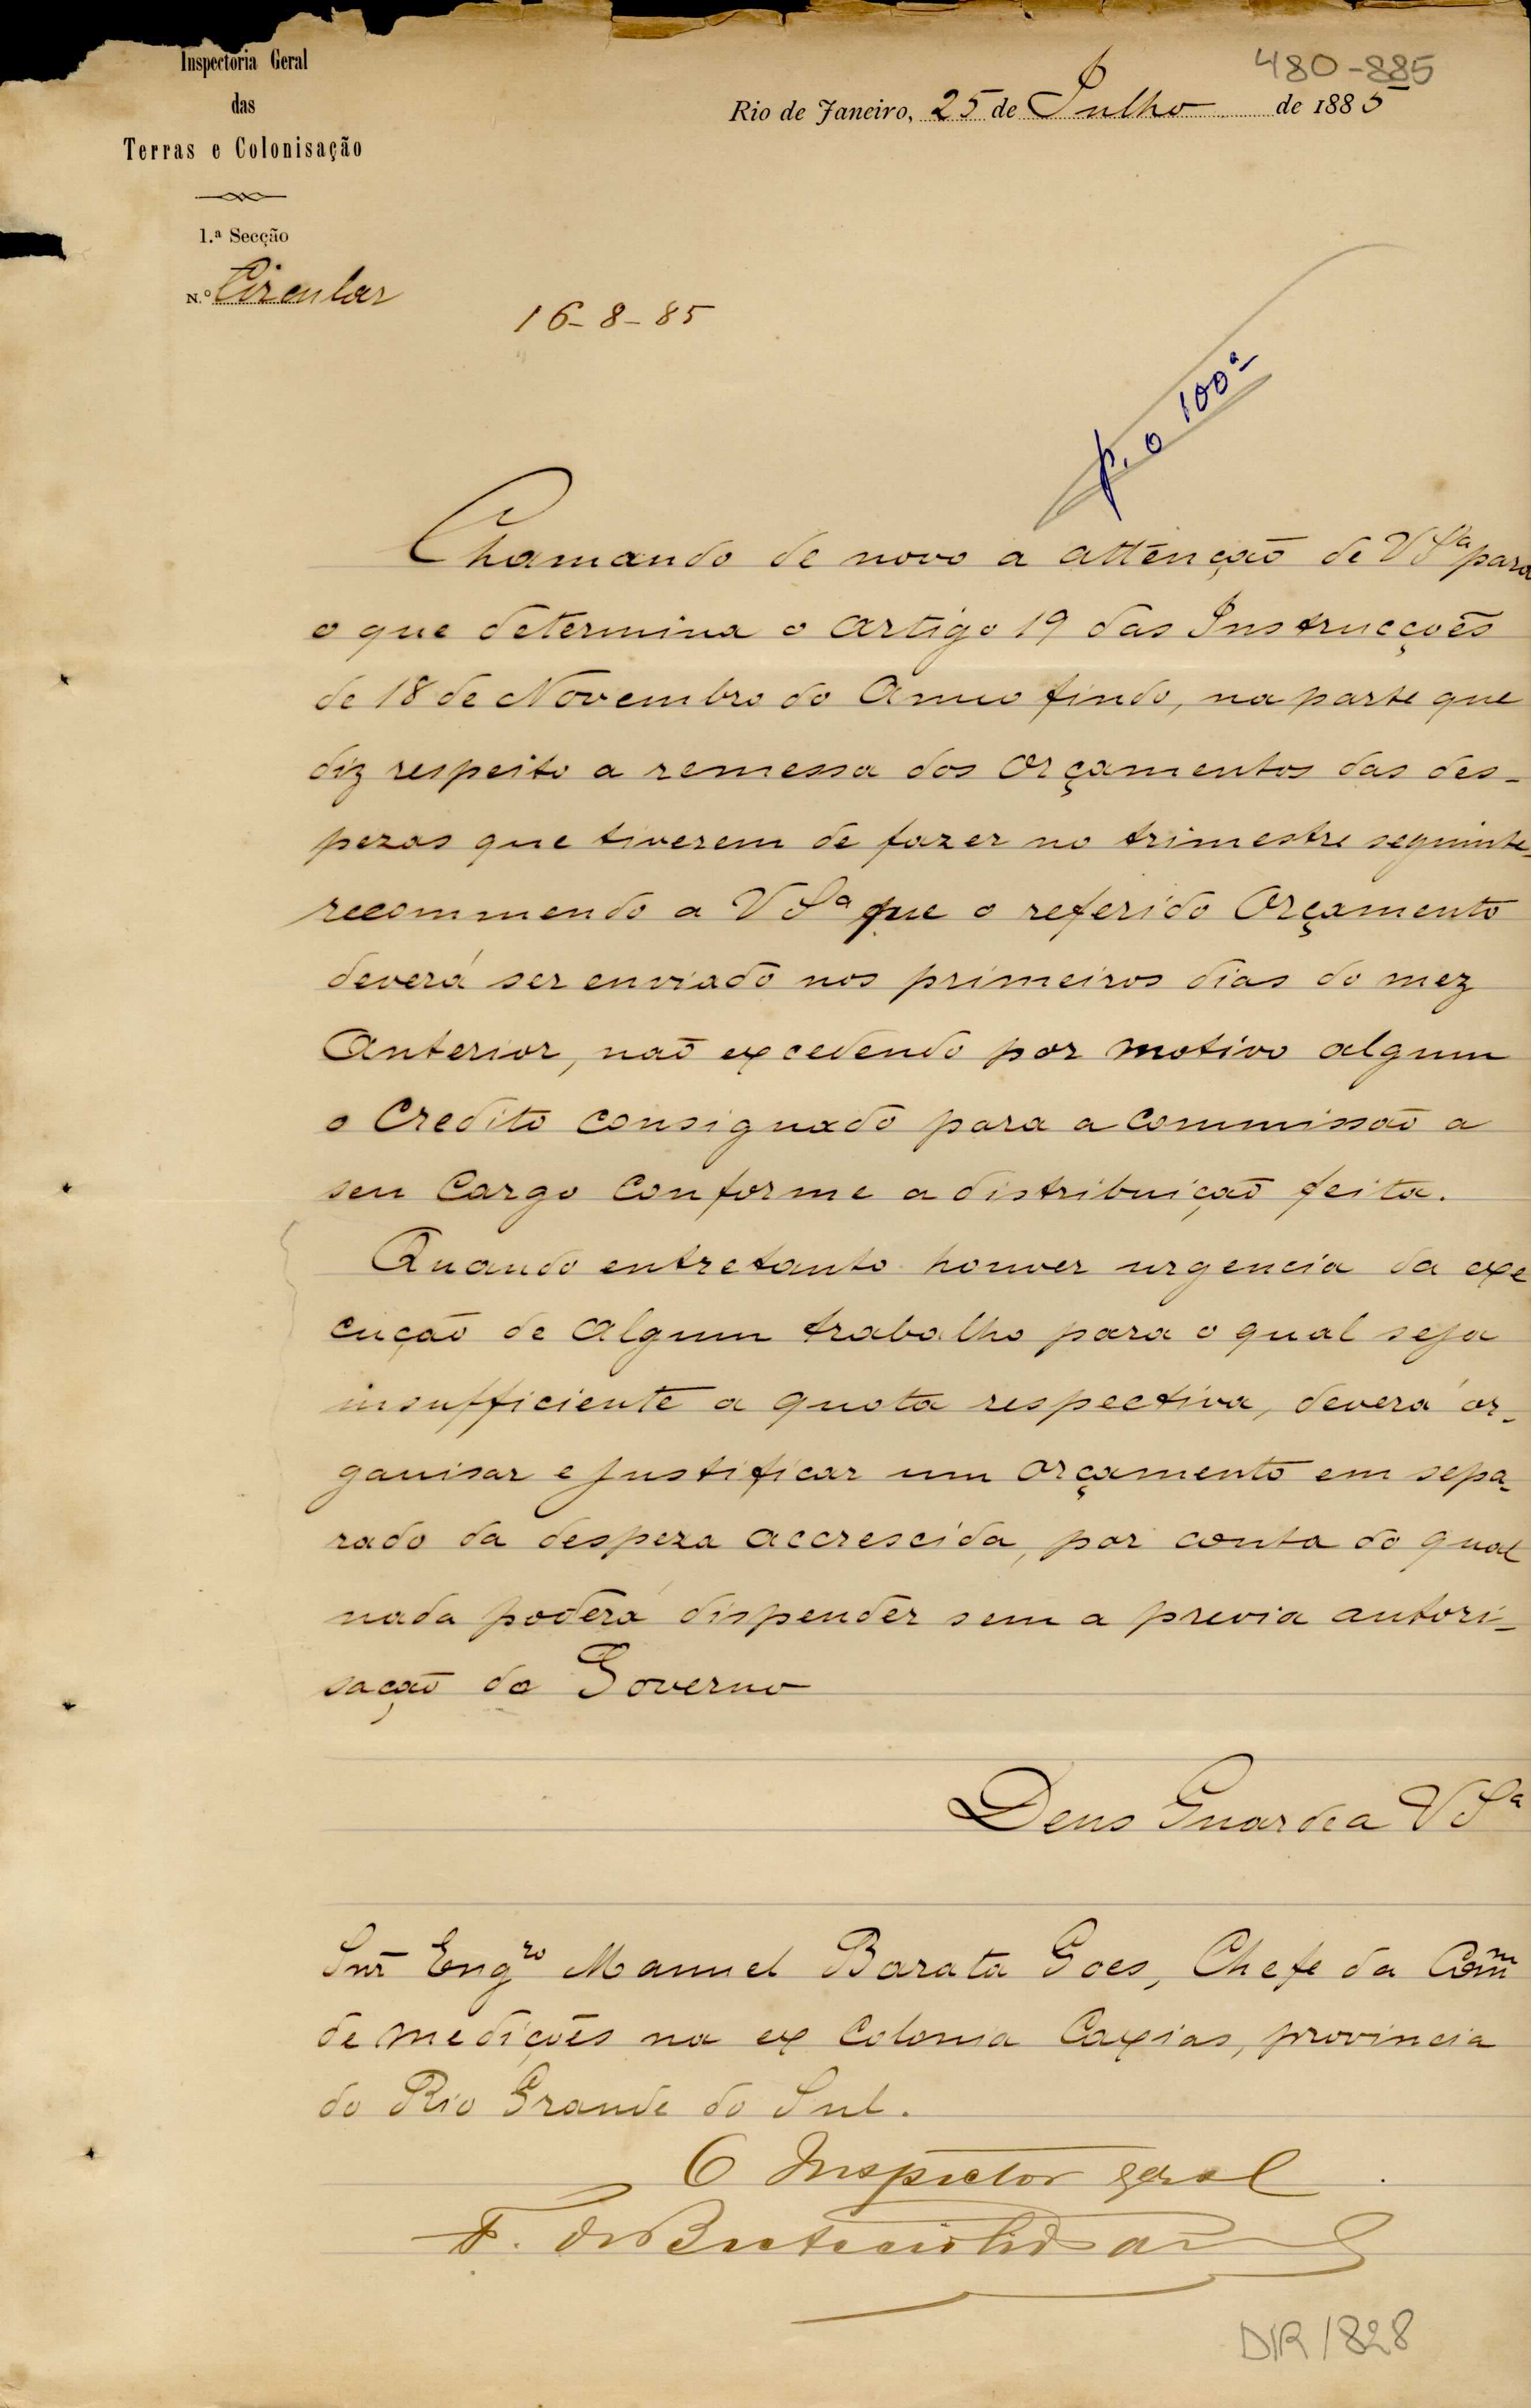 Inspectoria Geral
das
Terras e Colonisação
1.ª Secção
N.º Circular
480-885
Rio de Janeiro, 25 de Julho de 1885
16-8-85
p. o 100ª
Chamando de novo a attenção de VSª para
o que determina o artigo 19 das Instrucções
de 18 de Novembro do anno findo, na parte que
diz respeito a remessa dos orçamentos das des-
pezas que tiverem de fazer no trimestre seguinte
recommendo a VSª que o referido Orçamento
deverá ser enviado nos primeiros dias do mez
anterior, não excedendo por motivo algum
o Credito consignado para a Commissão a
seu Cargo conforme a distribuição feita.
Quando entretanto houver urgencia da exe
cução de algum trabalho para o qual seja
insufficiente a quota respectiva, deverá or-
ganisar e justificar um orçamento em sepa-
rado da despeza accrescida, por conta do qual
nada poderá dispender sem a previa autori-
sação do Governo
Deus Guarde a VSª
Snr Engro Manuel Barata Goes, Chefe da Comm
de medições na ex Colonia Caxias, provincia
do Rio Grande do Sul.
O Inspector geral
F. de
DIR 1828